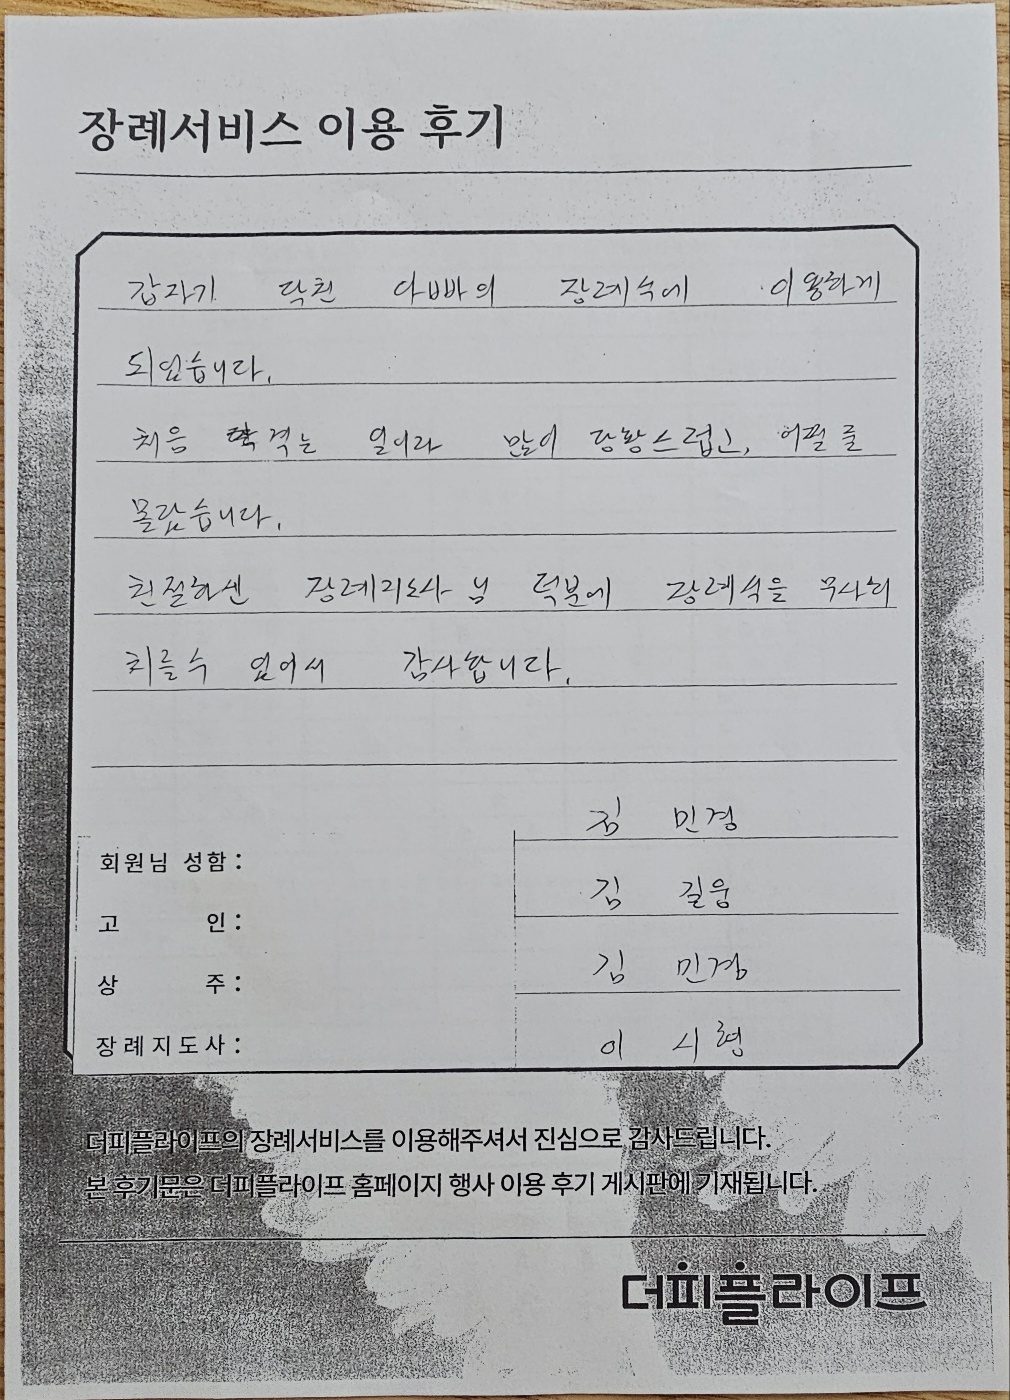 장례서비스 이용 후기
갑자기 닥친 아빠의 장례식에 이용하게
되었습니다.
처음 격는 일이라 많이 당황스럽고, 어쩔 줄
몰랐습니다.
친절하신 장례지도사님 덕분에 장례식을 무사히
치를수 있어서 감사합니다.
회원님 성함: 김 민경
고 인: 김 길웅
상 주: 김 민경
장례지도사: 이 시형
더피플라이프의 장례서비스를 이용해주셔서 진심으로 감사드립니다.
본 후기문은 더피플라이프 홈페이지 행사 이용 후기 게시판에 기재됩니다.
더피플라이프